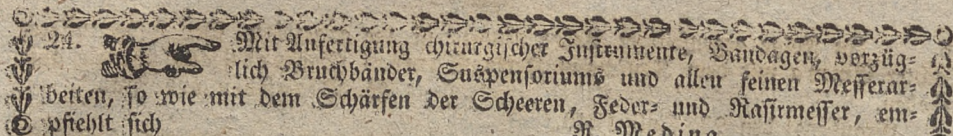 24. Mit Anfertigung chirurgischer Instrumente, Bandagen, vorzüg-
lich Bruchbänder, Suspensoriums und allen feinen Messerar-
beiten, so wie mit dem Schärfen der Scheeren, Feder- und Rasirmesser, em-
pfiehlt sich R. Meding